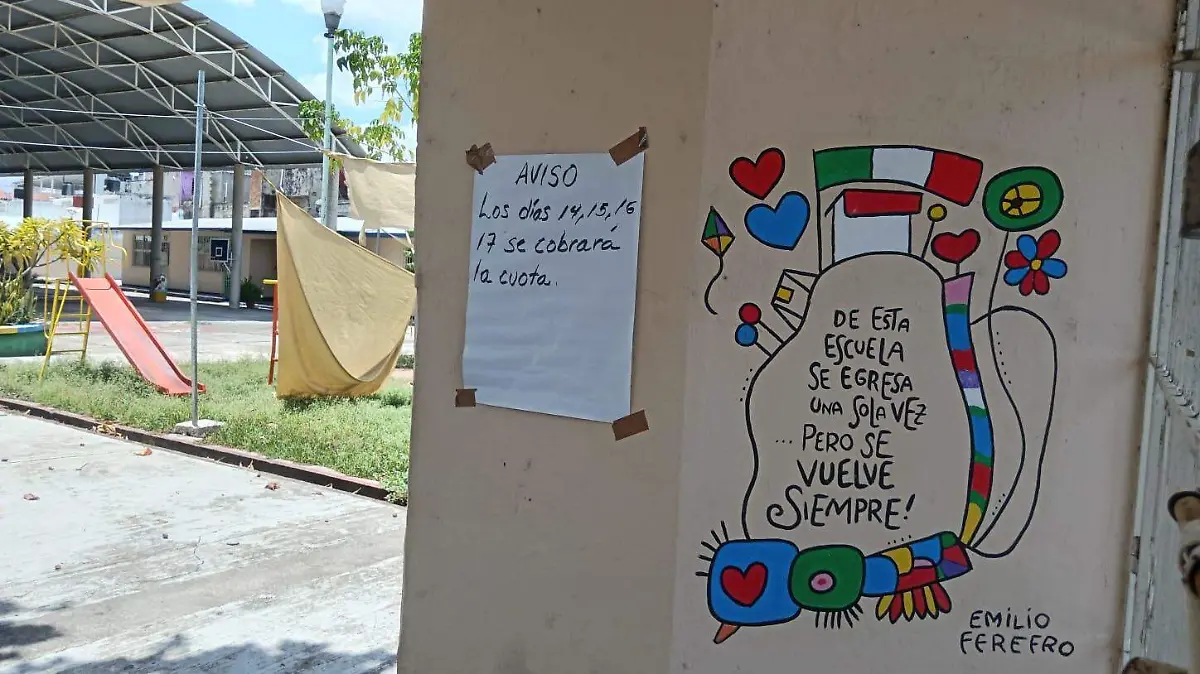 AVISO
Los días 14,15,16
17 se cobrará
la cuota.
DE ESTA
ESCUELA
SE EGRESA
UNA SOLA VEZ
... PERO SE
VUELVE
SIEMPRE!
EMILIO
FEREFRO